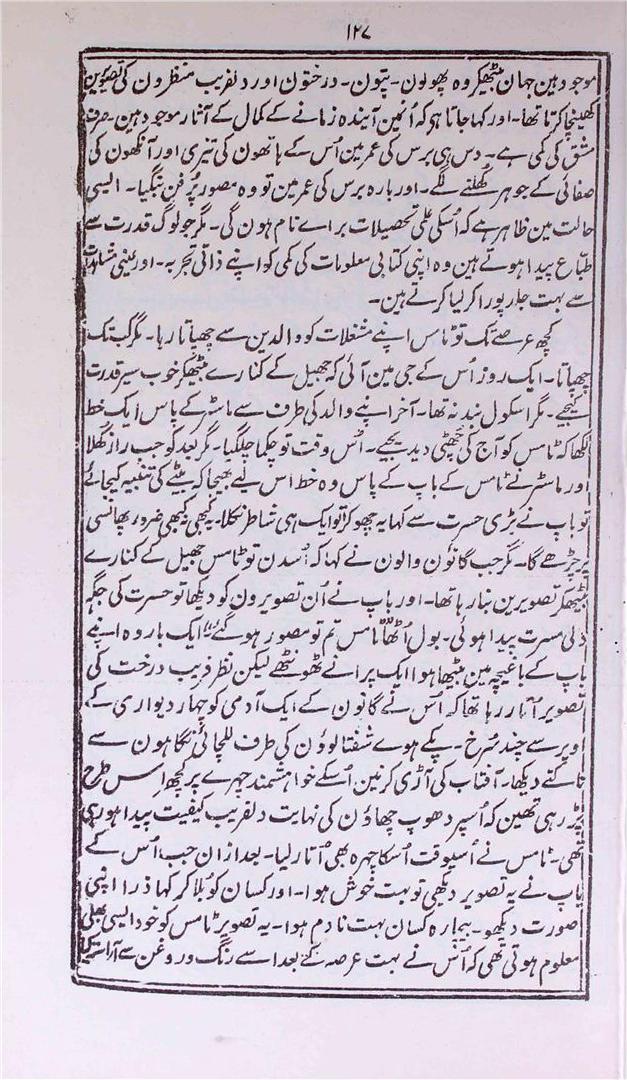 ۱۲۷
موجود ہین جہان بیٹھکر وہ پھولون۔ پتون۔ درختون اور دلفریب منظرون کی تصویرین
کھینچا کرتا تھا۔ اور کہا جاتا ہی کہ اُنمین آیندہ زمانے کے کمال کے آثار موجود ہین۔ صرف
مشق کی کمی ہے۔ دس ہی برس کی عمر مین اُس کے ہاتھون کی تیزی اور آنکھون کی
صفائی کے جوہر کُھلنے لگے۔ اور بارہ برس کی عمر مین تو وہ مصور پُرفن بنگیا۔ ایسی
حالت مین ظاہر ہے کہ اُسکی علمی تحصیلات براے نام ہون گی۔ مگر جو لوگ قدرت سے
طبّاع پیدا ہوتے ہین وہ اپنی کتابی معلومات کی کمی کو اپنے ذاتی تجربہ۔ اور عینی مشاہدات
سے بہت جلد پورا کر لیا کرتے ہین۔
کچھ عرصے تک تو ٹامس اپنے مشغلات کو والدین سے چھپاتا رہا۔ مگر کب تک
چھپاتا۔ ایک روز اُس کے جی مین آئی کہ جھیل کے کنارے بیٹھکر خوب سیر قدرت
کیجیے۔ مگر اسکول بند نہ تھا۔ آخر اپنے والد کی طرف سے ماسٹر کے پاس ایک خط
لکھا کہ ٹامس کو آج کی چھٹی دیدیجیے۔ اُس وقت تو چکما چلگیا۔ مگر بعد کو جب راز کُھلا
اور ماسٹر نے ٹامس کے باپ کے پاس وہ خط اس لیے بھیجا کہ بیٹے کی تنبیہ کیجائے
تو باپ نے بڑی حسرت سے کہا یہ چھوکرا تو ایک ہی شاطر نکلا۔ یہ کبھی نہ کبھی ضرور پھانسی
پر چڑھے گا۔ مگر جب گانؤن والون نے کہا کہ اُسدن تو ٹامس جھیل کے کنارے
بیٹھکر تصویرین بنا رہا تھا۔ اور باپ نے اُن تصویرون کو دیکھا تو حسرت کی جگہ
دلی مسرت پیدا ہوئی۔ بول اُٹھا ”ٹامس تم تو مصور ہو گئے“ ایک بار وہ اپنے
باپ کے باغیچہ مین بیٹھا ہوا ایک پرانے ٹھونٹھے لیکن نظر فریب درخت کی
تصویر اُتار رہا تھا کہ اُس نے گانؤن کے ایک آدمی کو چہار دیواری کے
اوپر سے چند سُرخ۔ پکے ہوے شفتالوؤن کی طرف للچائی نگاہون سے
تاکتے دیکھا۔ آفتاب کی آڑی کرنین اُسکے خواہشمند چہرے پر کچھ اِس طرح
پڑ رہی تھین کہ اُسپر دھوپ چھاؤن کی نہایت دلفریب کیفیت پیدا ہو رہی
تھی۔ ٹامس نے اُسیوقت اُسکا چہرہ بھی اُتار لیا۔ بعد ازان جب اُس کے
باپ نے یہ تصویر دیکھی تو بہت خوش ہوا۔ اور کسان کو بُلا کر کہا ذرا اپنی
صورت دیکھو۔ بیچارہ کسان بہت نادم ہوا۔ یہ تصویر ٹامس کو خود ایسی بھلی
معلوم ہوتی تھی کہ اُس نے بہت عرصہ کے بعد اسے رنگ و روغن سے آراستہ کیا